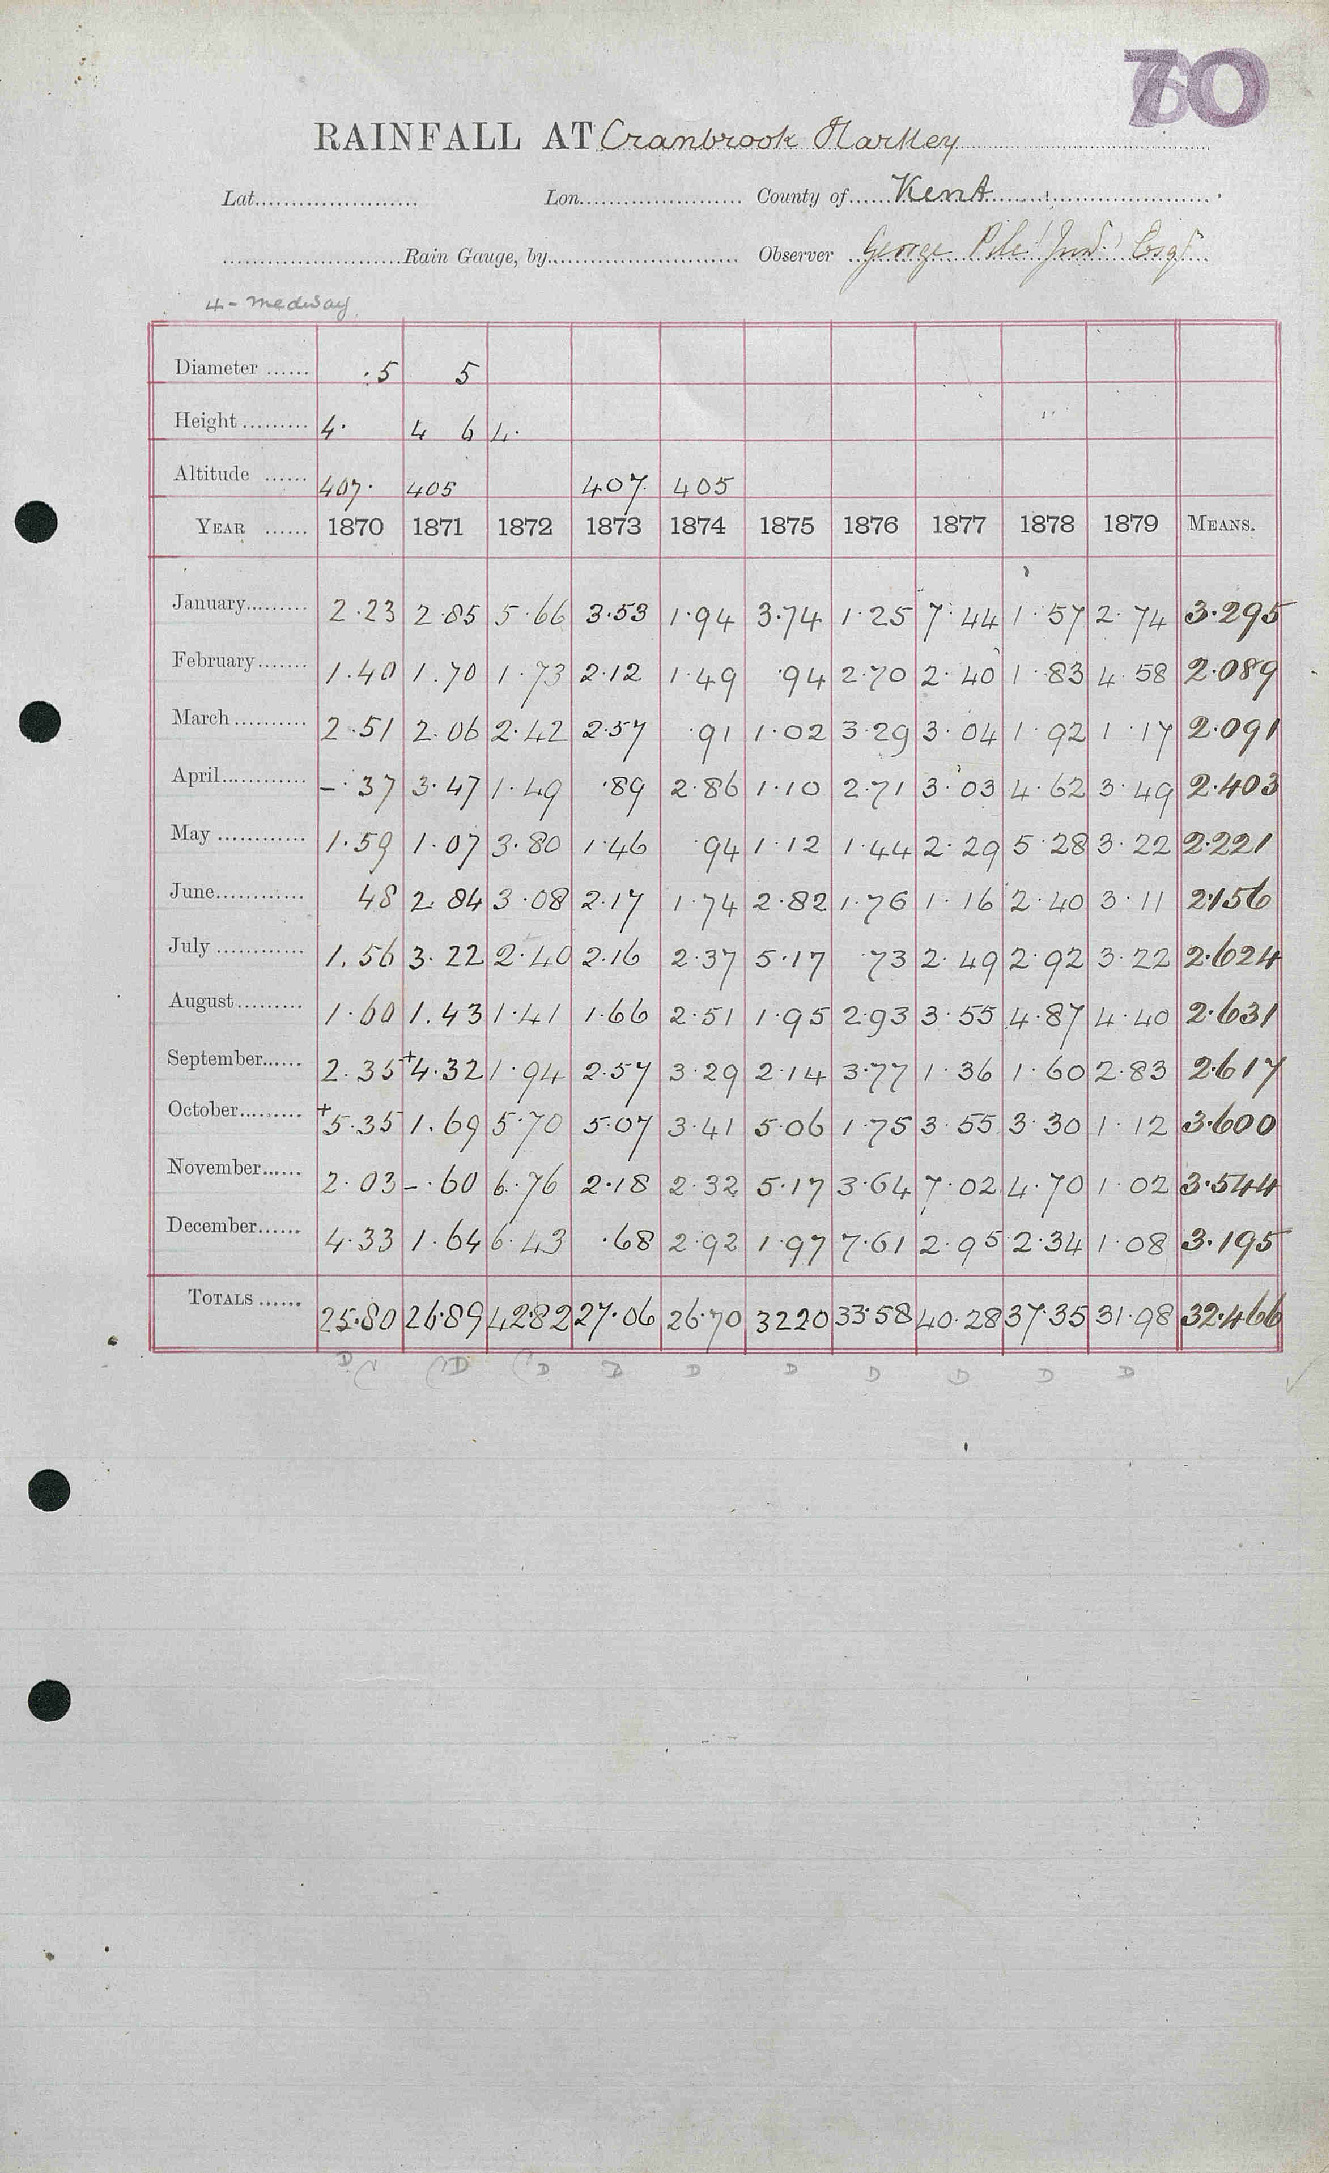 70
RAINFALL AT Cranbrook Hartley
Lat. Lon. County of Kent
Rain Gauge, by Observer George Pile Junr. Esqr
4 - Medway
Diameter ...... .5 5
Height ......... 4. 4 6 4.
Altitude ...... 407. 405 407 405
YEAR ...... 1870 1871 1872 1873 1874 1875 1876 1877 1878 1879 MEANS.
January......... 2.23 2.85 5.66 3.53 1.94 3.74 1.25 7.44 1.57 2.74 3.295
February....... 1.40 1.70 1.73 2.12 1.49 .94 2.70 2.40 1.83 4.58 2.089
March.......... 2.51 2.06 2.42 2.57 .91 1.02 3.29 3.04 1.92 1.17 2.091
April............ -.37 3.47 1.49 .89 2.86 1.10 2.71 3.03 4.62 3.49 2.403
May ............ 1.59 1.07 3.80 1.46 .94 1.12 1.44 2.29 5.28 3.22 2.221
June............ 48 2.84 3.08 2.17 1.74 2.82 1.76 1.16 2.40 3.11 2.156
July ............ 1.56 3.22 2.40 2.16 2.37 5.17 .73 2.49 2.92 3.22 2.624
August......... 1.60 1.43 1.41 1.66 2.51 1.95 2.93 3.55 4.87 4.40 2.631
September...... 2.35 +4.32 1.94 2.57 3.29 2.14 3.77 1.36 1.60 2.83 2.617
October......... +5.35 1.69 5.70 5.07 3.41 5.06 1.75 3.55 3.30 1.12 3.600
November...... 2.03 -.60 6.76 2.18 2.32 5.17 3.64 7.02 4.70 1.02 3.544
December...... 4.33 1.64 6.43 .68 2.92 1.97 7.61 2.95 2.34 1.08 3.195
TOTALS ...... 25.80 26.89 42.82 27.06 26.70 32.20 33.58 40.28 37.35 31.98 32.466
D D D D D D D D D D